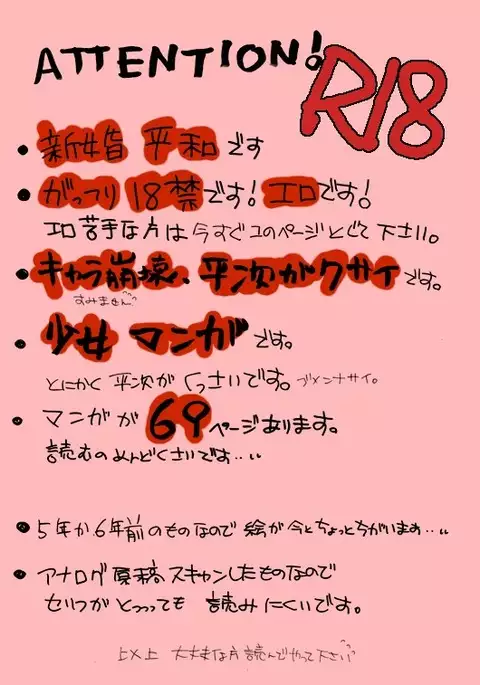 ATTENTION!
R18
• 新婚 平和です
• がっつり 18禁です! エロです!
エロ苦手な方は今すぐこのページとじて下さい。
• キャラ崩壊、平次がクサイです。
すみません
• 少女マンガです。
とにかく平次がくっさいです。ゴメンナサイ。
• マンガが69ページあります。
読むのめんどくさいです‥‥
• 5年か6年前のものなので絵が今とちょっとちがいます‥‥
• アナログ原稿スキャンしたものなので
セリフがとっっっても 読みにくいです。
以上 大丈夫な方読んでやって下さい